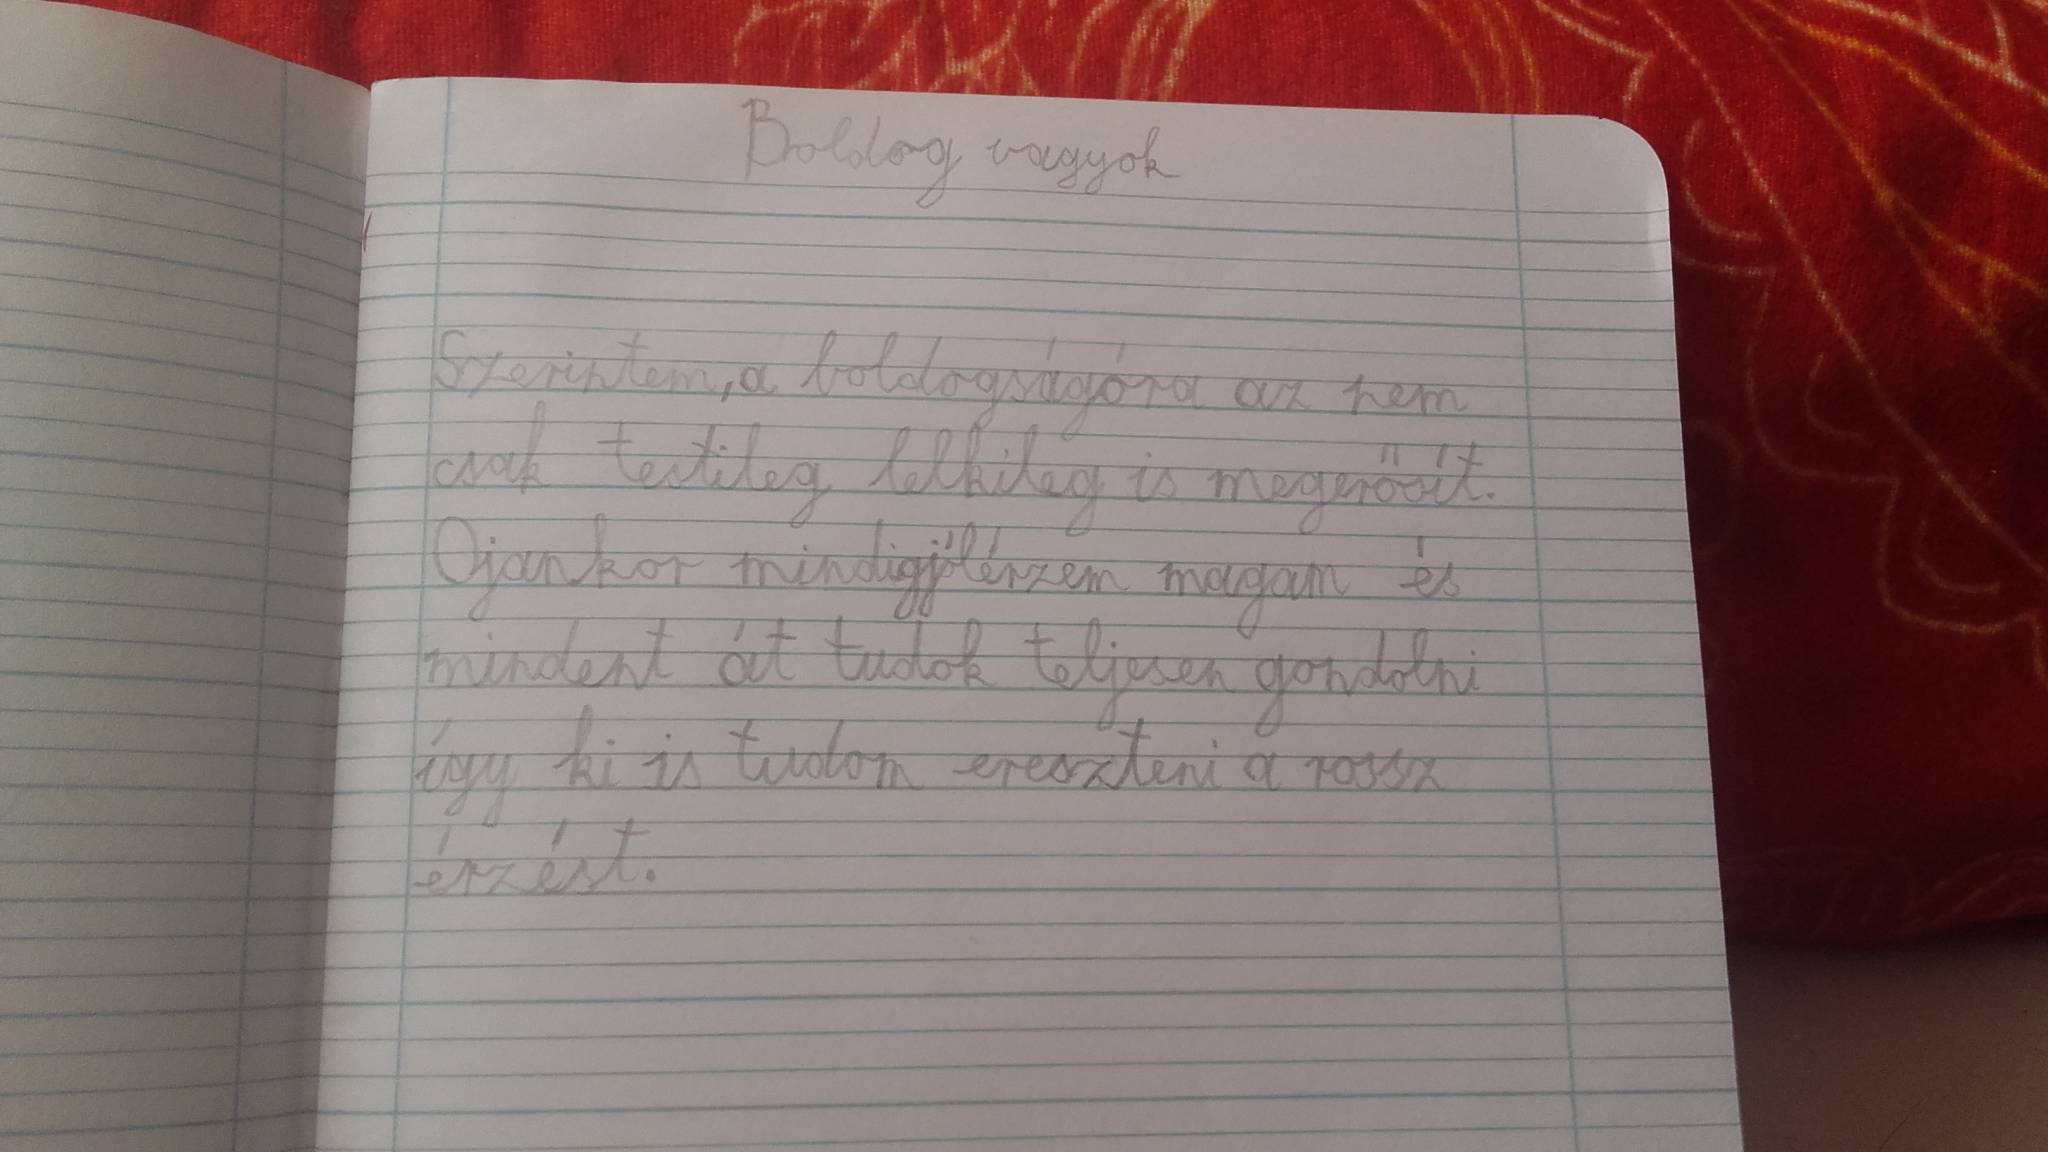 Boldog vagyok
Szerintem, a boldogságóra az nem
csak testileg lelkileg is megerőőít.
Ojankor mindigjólérzem magam és
mindent át tudok teljesen gondolni
így ki is tudom ereszteni a rossz
érzést.